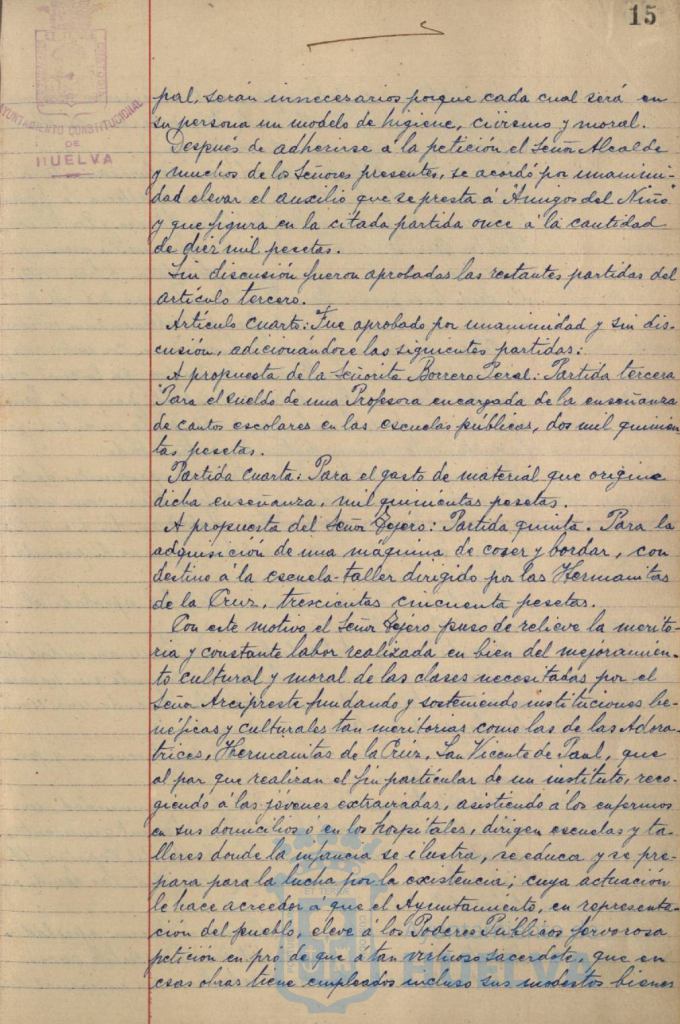 15
AYUNTAMIENTO CONSTITUCIONAL
DE
HUELVA
pal, serán innecesarios porque cada cual será en
su persona un modelo de higiene, civismo y moral.
Después de adherirse á la petición el Señor Alcalde
y muchos de los Señores presentes, se acordó por unanimi-
dad elevar el auxilio que se presta á "Amigos del Niño"
y que figura en la citada partida once á la cantidad
de diez mil pesetas.
Sin discusión fueron aprobadas las restantes partidas del
artículo tercero.
Artículo cuarto: Fue aprobado por unanimidad y sin dis-
cusión, adicionándose las siguientes partidas:
A propuesta de la Señorita Borrero Peral: Partida tercera
Para el sueldo de una Profesora encargada de la enseñanza
de cantos escolares en las escuelas públicas, dos mil quinien
tas pesetas.
Partida cuarta: Para el gasto de material que origine
dicha enseñanza, mil quinientas pesetas.
A propuesta del Señor Tejero: Partida quinta. Para la
adquisición de una máquina de coser y bordar, con
destino á la escuela-taller dirigido por las Hermanitas
de la Cruz, trescientas cincuenta pesetas.
Con este motivo el Señor Tejero puso de relieve la merito-
ria y constante labor realizada en bien del mejoramien-
to cultural y moral de las clases necesitadas por el
Señor Arcipreste fundando y sosteniendo instituciones be-
néficas y culturales tan meritorias como las de las Adora-
trices, Hermanitas de la Cruz, San Vicente de Paul, que
al par que realizan el fin particular de un instituto, reco-
giendo á las jóvenes extraviadas, asistiendo á los enfermos
en sus domicilios ó en los hospitales, dirigen escuelas y ta-
lleres donde la infancia se ilustra, se educa y se pre-
para para la lucha por la existencia; cuya actuación
le hace acreedor á que el Ayuntamiento, en representa-
ción del pueblo, eleve á los Poderes Públicos fervorosa
petición en pró de que á tan virtuoso sacerdote, que en
esas obras tiene empleados incluso sus modestos bienes
HUELVA